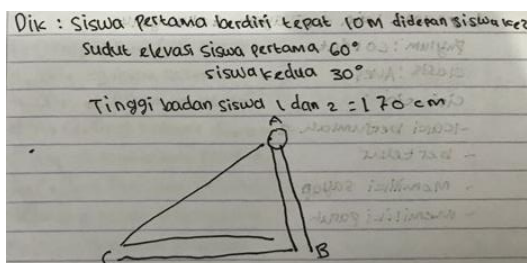 Dik : Siswa pertama berdiri tepat 10 m didepan siswa ke2
Sudut elevasi siswa pertama 60°
siswa kedua 30°
Tinggi badan siswa 1 dan 2 = 170 cm
A
C
B